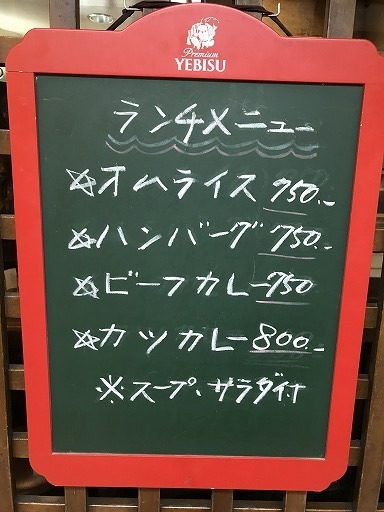 Premium
YEBISU
ランチメニュー
☆オムライス 750.-
☆ハンバーグ 750.-
☆ビーフカレー750
☆カツカレー800.-
※スープ、サラダ付